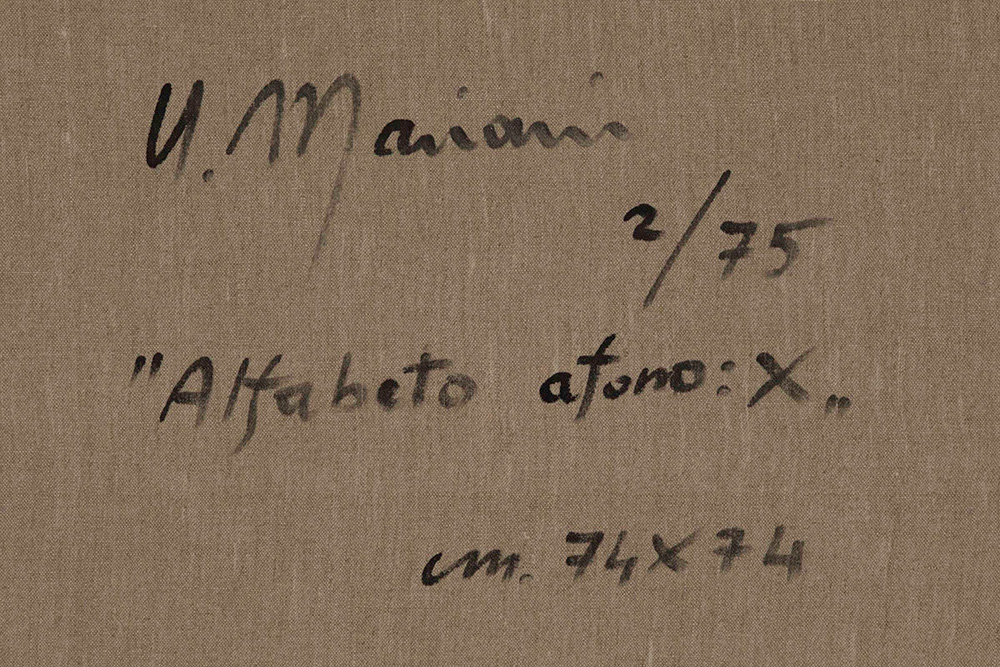 U. Mariani
2/75
"Alfabeto afono: X„
cm. 74X74